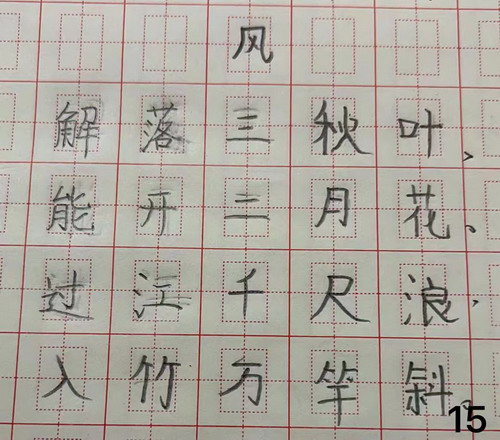 风
解落三秋叶、
能开二月花、
过江千尺浪，
入竹万竿斜。
15